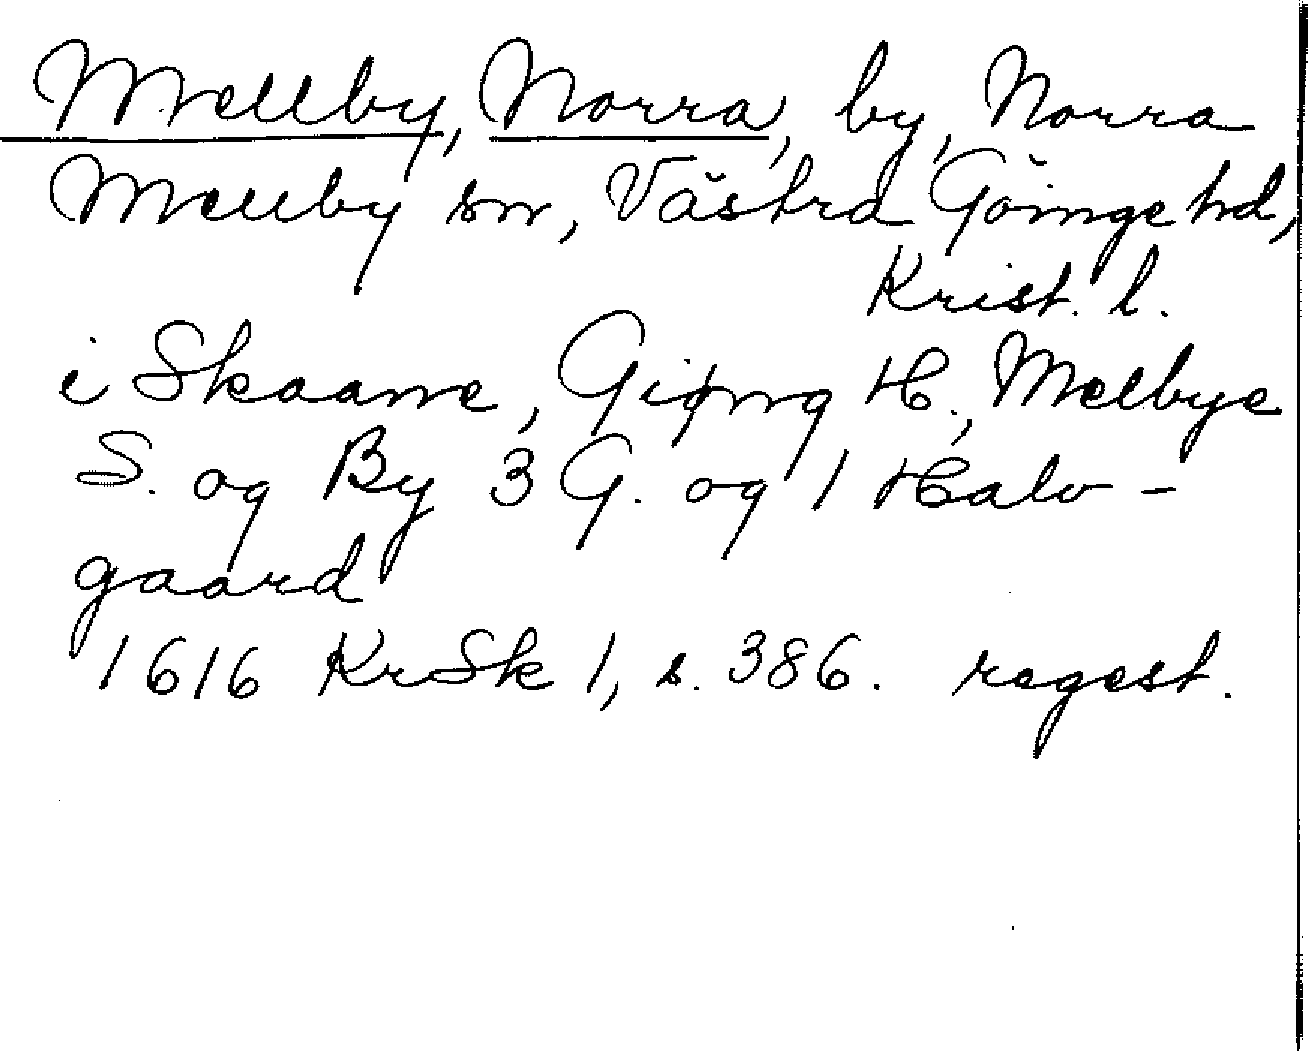 Mellby, Norra, by, Norra
Mellby sn, Västra Göinge hd,
Krist. l.
i Skaane, Giøng H., Melbye
S. og By 3 G. og 1 Halv-
gaard
1616 KrSk 1, s. 386. regest.